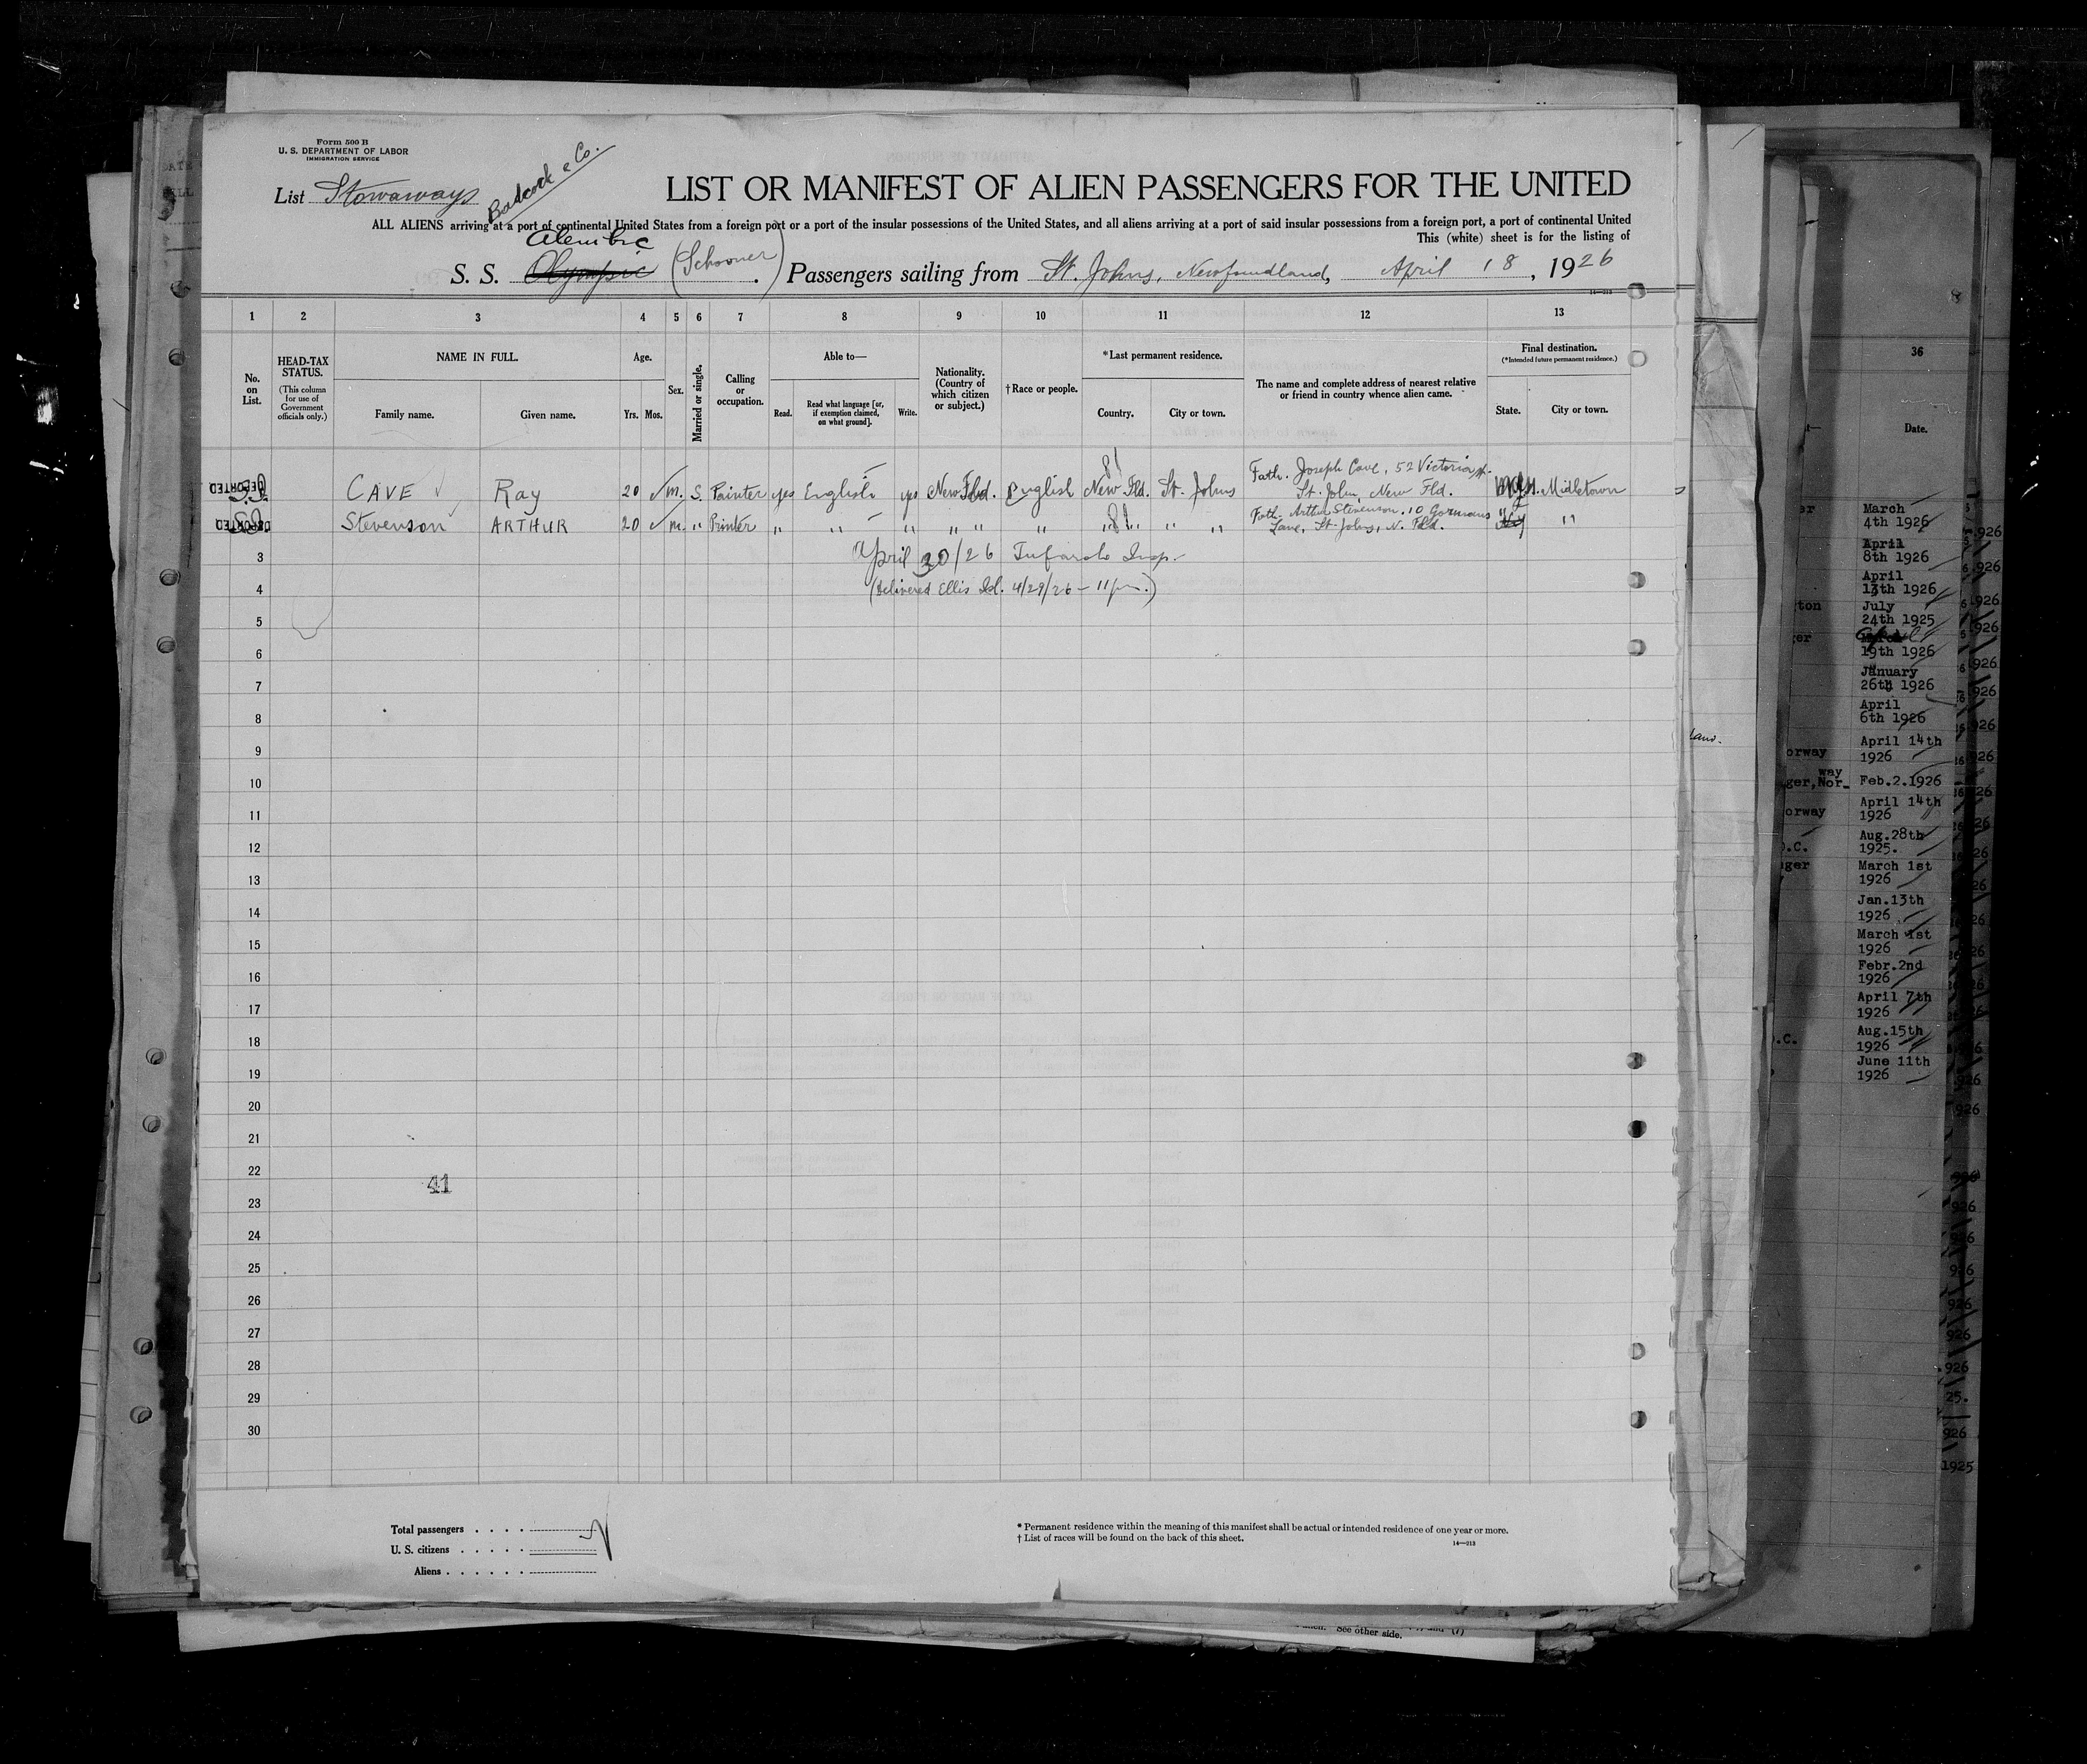 Form 500 B
U. S. DEPARTMENT OF LABOR
IMMIGRATION SERVICE
List Stowaways
Badcock & Co.
LIST OR MANIFEST OF ALIEN PASSENGERS FOR THE UNITED
ALL ALIENS arriving at a port of continental United States from a foreign port or a port of the insular possessions of the United States, and all aliens arriving at a port of said insular possessions from a foreign port, a port of continental United
This (white) sheet is for the listing of
Alembic
S. S. Olympic (Schooner) Passengers sailing from St. Johns, Newfoundland, April 18, 1926
14—213
1 2 3 4 5 6 7 8 9 10 11 12 13
No. on List.
HEAD-TAX STATUS. (This column for use of Government officials only.)
NAME IN FULL.
Family name. Given name.
Age.
Yrs. Mos.
Sex.
Married or single.
Calling or occupation.
Able to—
Read. Read what language [or, if exemption claimed, on what ground]. Write.
Nationality. (Country of which citizen or subject.)
† Race or people.
* Last permanent residence.
Country. City or town.
The name and complete address of nearest relative or friend in country whence alien came.
Final destination.
(*Intended future permanent residence.)
State. City or town.
DEPORTED CAVE Ray 20 m. S. Painter yes English yes New Fld. English New Fld. St. Johns Fath. Joseph Cave, 52 Victoria St. St. John, New Fld. Midletown
DEPORTED Stevenson ARTHUR 20 m. " Printer " " " " " " " " " " Fath. Arthur Stevenson, 10 Gormans Lane, St. Johns, N. Fld. "
3 April 30/26 Insp.
4 (Delivered Ellis Isl. 4/29/26 – 11 pm.)
5
6
7
8
9
10
11
12
13
14
15
16
17
18
19
20
21
22
41
23
24
25
26
27
28
29
30
Total passengers
U. S. citizens
Aliens
* Permanent residence within the meaning of this manifest shall be actual or intended residence of one year or more.
† List of races will be found on the back of this sheet.
14—213
See other side.
36
Date.
March
4th 1926
April
8th 1926
April
13th 1926
July
24th 1925
19th 1926
January
26th 1926
April
6th 1926
orway April 14th
1926
way
ger,Nor_ Feb.2.1926
orway April 14th
1926
Aug.28th
1925.
March 1st
1926
Jan.13th
1926
March 1st
1926
Febr.2nd
1926
April 7th
1926
Aug.15th
1926
June 11th
1926